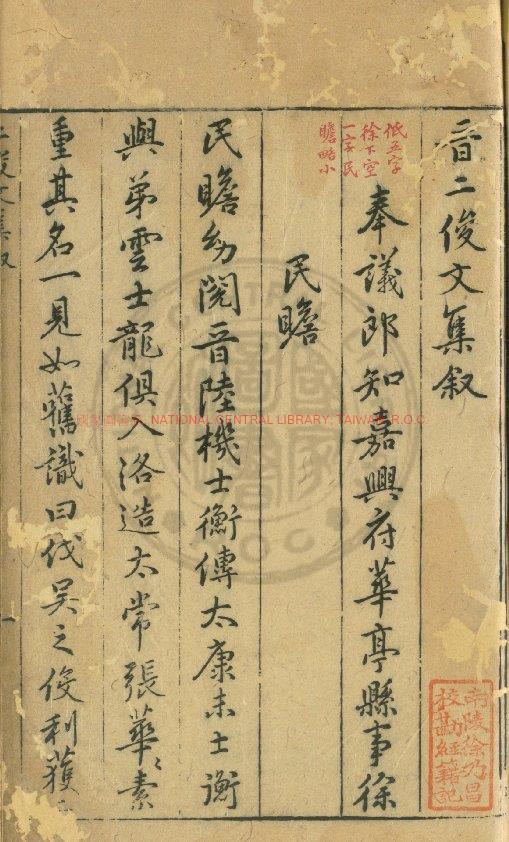 晋二俊文集叙
低五字
徐下空
一字民
瞻略小
奉議郎知嘉興府華亭縣事徐
民瞻
民瞻幼閱晋陸機士衡傳太康末士衡
與弟雲士龍俱入洛造太常張華〻素
重其名一見如舊識曰伐吳之役利獲二
二俊文集叙
一
南陵徐乃昌
校勘經籍記
國家圖書館 NATIONAL CENTRAL LIBRARY, TAIWAN R.O.C.